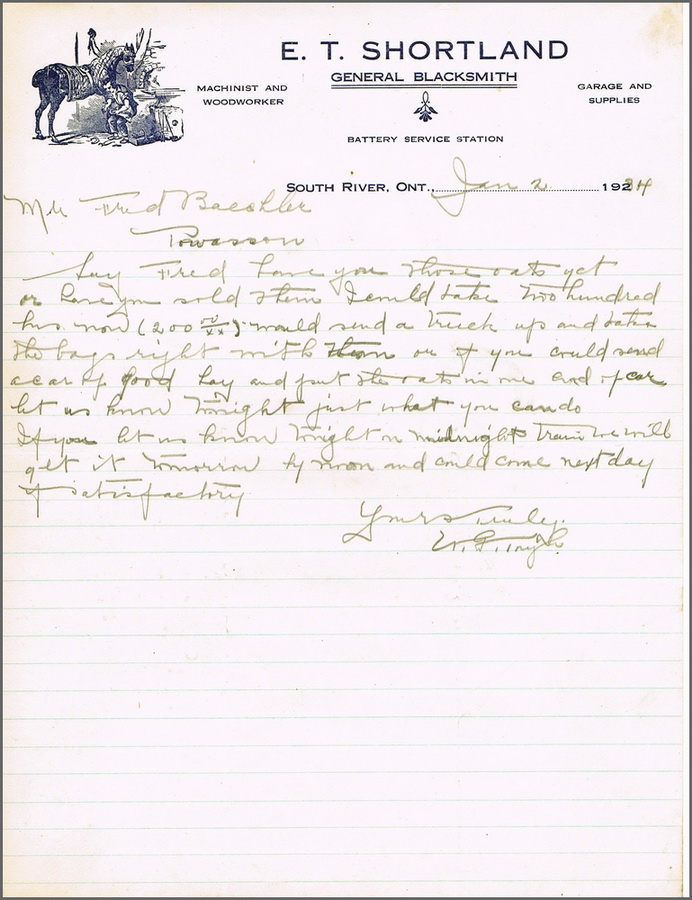 E. T. SHORTLAND
GENERAL BLACKSMITH
MACHINIST AND
WOODWORKER
GARAGE AND
SUPPLIES
BATTERY SERVICE STATION
SOUTH RIVER, ONT., Jan 2 1934
Mr Fred Baechler
Powassan
Say Fred have you those oats yet
or have you sold them I could take two hundred
bus. now (200 00/xx) would send a truck up and take
the bags right with them or if you could send
a car of good hay and put the oats in one end of car
let us know tonight just what you can do
If you let us know tonight on midnight train we will
get it tomorrow by noon and could come next day
if satisfactory
Yours Truly.
W. G.